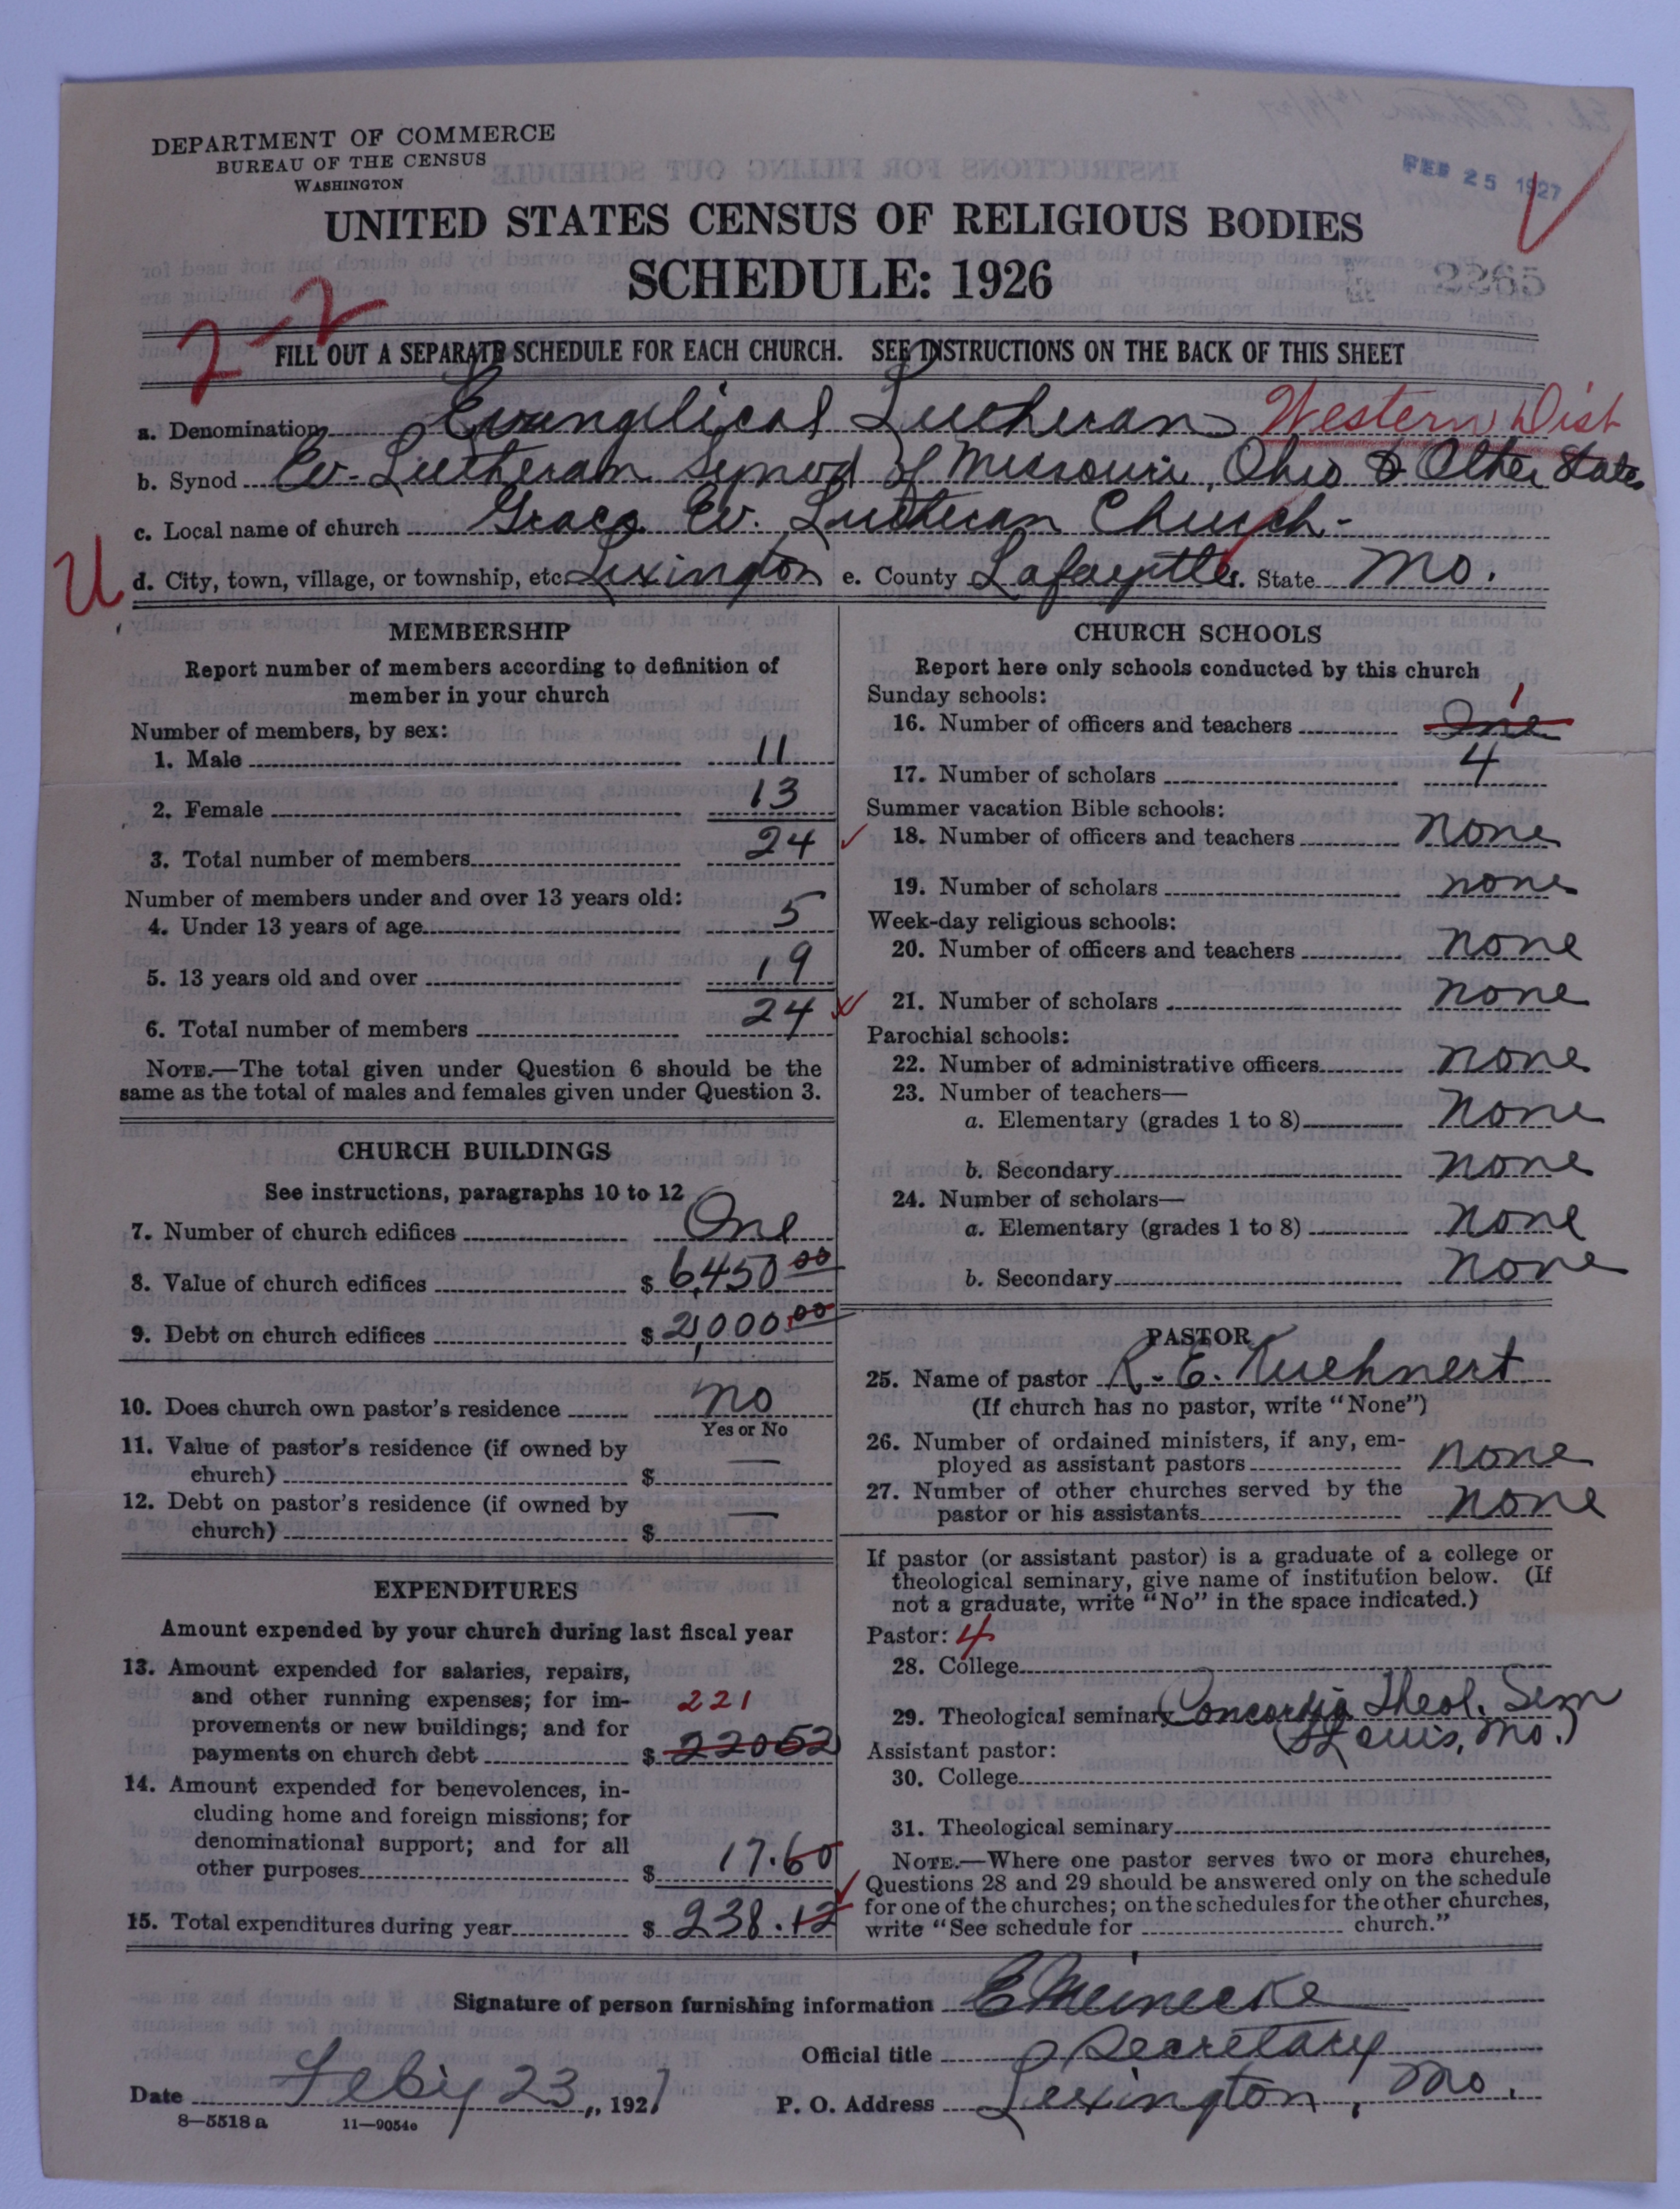 DEPARTMENT OF COMMERCE
BUREAU OF THE CENSUS
WASHINGTON
FEB 25 1927
UNITED STATES CENSUS OF RELIGIOUS BODIES
SCHEDULE: 1926
2265
2-2
FILL OUT A SEPARATE SCHEDULE FOR EACH CHURCH. SEE INSTRUCTIONS ON THE BACK OF THIS SHEET
a. Denomination Evangelical Lutheran Western Dist
b. Synod Ev-Lutheran Synod of Missouri, Ohio & Other States
c. Local name of church Grace Ev. Lutheran Church-
U d. City, town, village, or township, etc. Lexington e. County Lafayette f. State Mo.
MEMBERSHIP
Report number of members according to definition of
member in your church
Number of members, by sex:
1. Male 11
2. Female 13
3. Total number of members 24
Number of members under and over 13 years old:
4. Under 13 years of age 5
5. 13 years old and over 19
6. Total number of members 24
NOTE.—The total given under Question 6 should be the
same as the total of males and females given under Question 3.
CHURCH BUILDINGS
See instructions, paragraphs 10 to 12
7. Number of church edifices One
8. Value of church edifices $ 6,450.00
9. Debt on church edifices $ 2,000.00
10. Does church own pastor's residence no
Yes or No
11. Value of pastor's residence (if owned by
church) $ —
12. Debt on pastor's residence (if owned by
church) $ —
EXPENDITURES
Amount expended by your church during last fiscal year
13. Amount expended for salaries, repairs,
and other running expenses; for im- 221
provements or new buildings; and for
payments on church debt $ 22052
14. Amount expended for benevolences, in-
cluding home and foreign missions; for
denominational support; and for all
other purposes $ 17.60
15. Total expenditures during year $ 238.12
CHURCH SCHOOLS
Report here only schools conducted by this church
Sunday schools: 1
16. Number of officers and teachers One
17. Number of scholars 4
Summer vacation Bible schools:
18. Number of officers and teachers none
19. Number of scholars none
Week-day religious schools:
20. Number of officers and teachers none
21. Number of scholars none
Parochial schools:
22. Number of administrative officers none
23. Number of teachers—
a. Elementary (grades 1 to 8) none
b. Secondary none
24. Number of scholars—
a. Elementary (grades 1 to 8) none
b. Secondary none
PASTOR
25. Name of pastor R. E. Kuehnert
(If church has no pastor, write "None")
26. Number of ordained ministers, if any, em-
ployed as assistant pastors none
27. Number of other churches served by the
pastor or his assistants none
If pastor (or assistant pastor) is a graduate of a college or
theological seminary, give name of institution below. (If
not a graduate, write "No" in the space indicated.)
Pastor: 4
28. College
29. Theological seminary Concordia Theol. Sem
(St Louis, Mo.)
Assistant pastor:
30. College
31. Theological seminary
NOTE.—Where one pastor serves two or more churches,
Questions 28 and 29 should be answered only on the schedule
for one of the churches; on the schedules for the other churches,
write "See schedule for church."
Signature of person furnishing information E Meinecke
Official title Secretary
Date Feb'y 23, 1927 P. O. Address Lexington, Mo.
8—5518 a 11—9054c